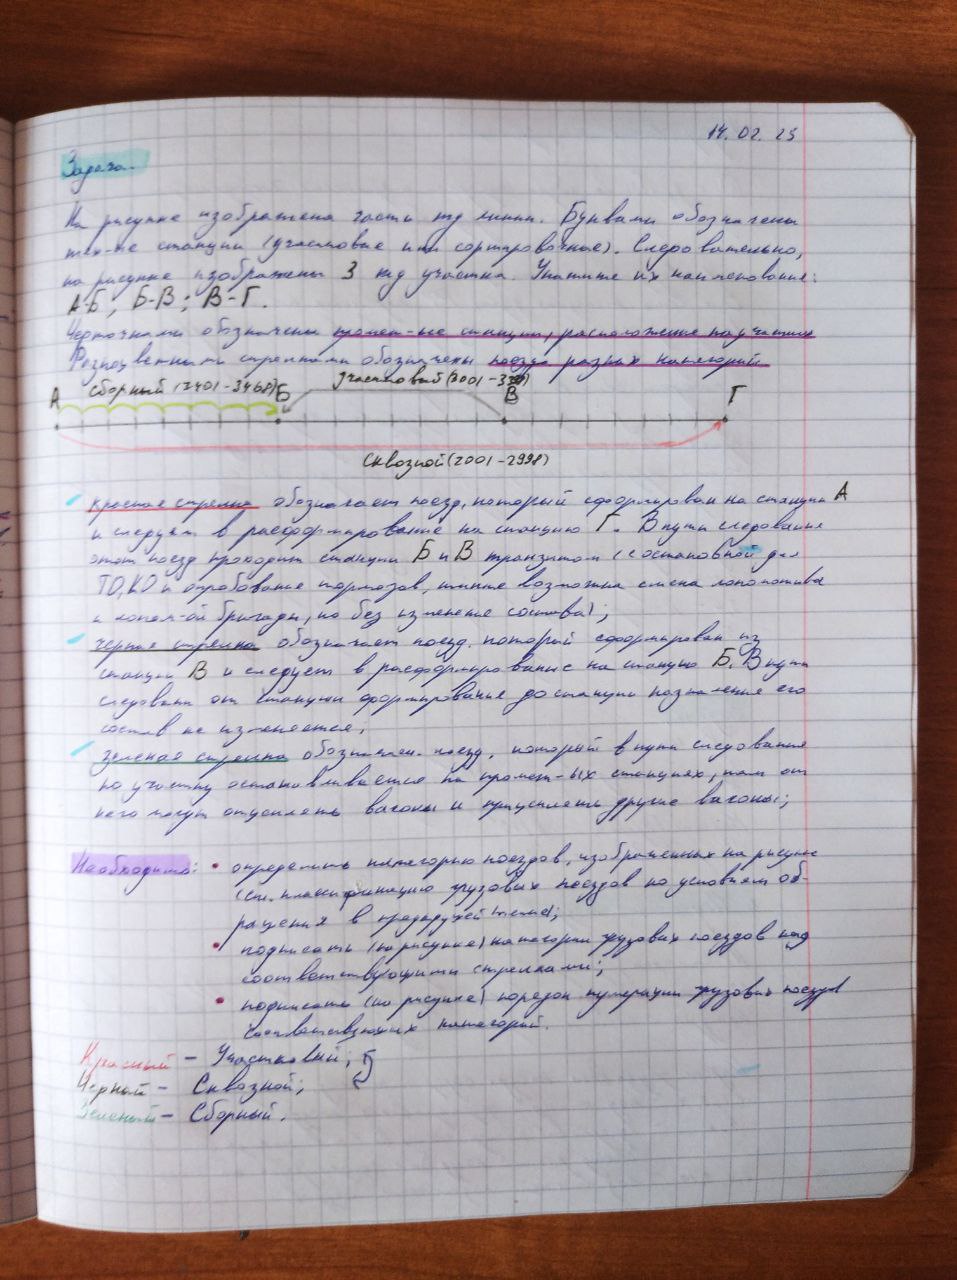 14.02.25
Задача.
На рисунке изображена часть жд линии. Буквами обозначены
тех-ие станции (участковые или сортировочные). Следовательно,
на рисунке изображены 3 жд участка. Укажите их наименование:
А-Б, Б-В; В-Г.
Черточками обозначены промеж-ые станции, расположение на участках
Разноцветными стрелками обозначены поезда разных категорий.
А сборный (3401-3468) Б участковый (3001- В Г
Сквозной (2001-2998)
красная стрелка обозначает поезд, который сформирован на станции А
и следует в расформирование на станцию Г. В пути следования
этот поезд проходит станции Б и В транзитом (с остановкой для
ТО, КО и опробование тормозов, также возможна смена локомотива
и локом-ой бригады, но без изменение состава);
черная стрелка обозначает поезд, который сформирован из
станции В и следует в расформирование на станцию Б. В пути
следовани от станции формирование до станции назначение его
состав не изменяется;
зеленая стрелка обозначает поезд, который в пути следования
по участку останавливается на промеж-ых станциях, там от
него могут отцеплять вагоны и прицеплять другие вагоны;
Необходимо: • определить категорию поездов, изображенных на рисунке
(см. классификацию грузовых поездов по условиям об-
ращения в предыдущей теме);
• подписать (на рисунке) категории грузовых поездов над
соответствующими стрелками;
• подписать (на рисунке) порядок нумерации грузовых поездов
соответствующих категорий.
Красный - Участковый;
Черный - Сквозной;
Зеленый - Сборный.